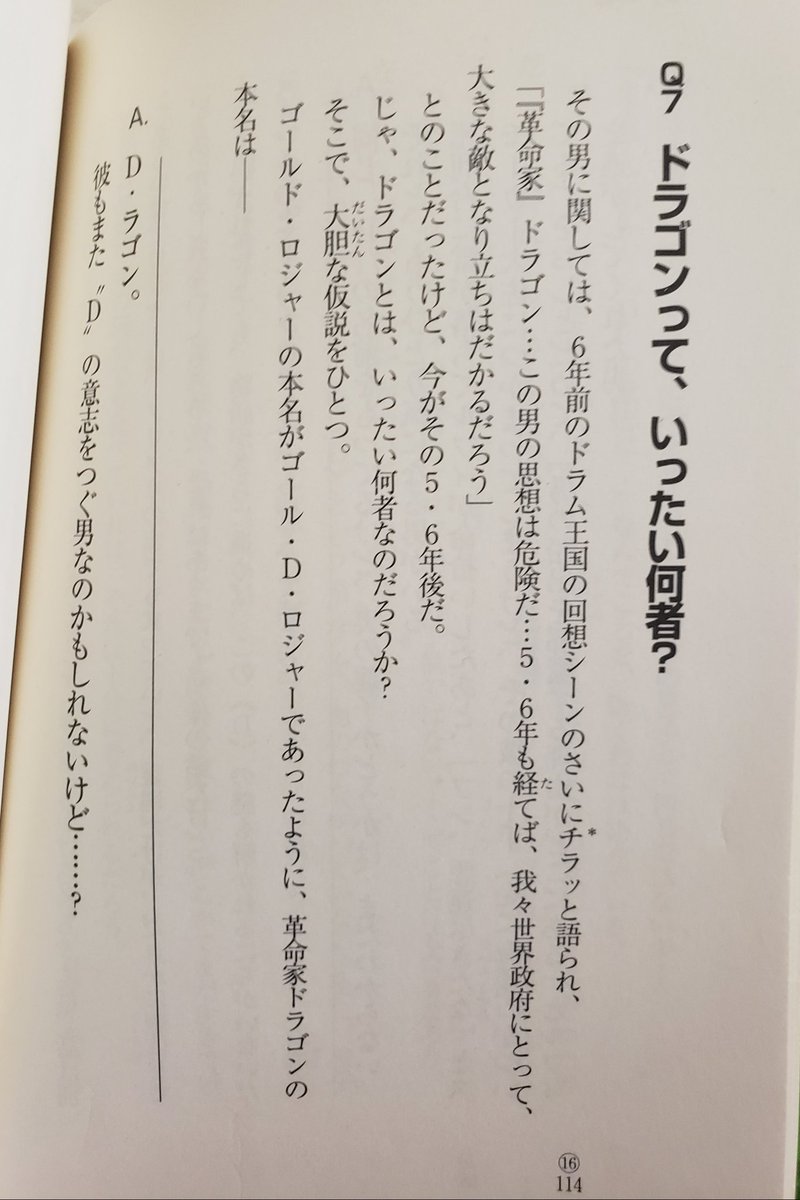 Q7 ドラゴンって、いったい何者?
その男に関しては、6年前のドラム王国の回想シーンのさいにチラッと語られ、
「『革命家』ドラゴン…この男の思想は危険だ…5・6年も経てば、我々世界政府にとって、
大きな敵となり立ちはだかるだろう」
とのことだったけど、今がその5・6年後だ。
じゃ、ドラゴンとは、いったい何者なのだろうか?
そこで、大胆な仮説をひとつ。
ゴールド・ロジャーの本名がゴール・D・ロジャーであったように、革命家ドラゴンの
本名は――
A. D・ラゴン。
彼もまた〝D〟の意志をつぐ男なのかもしれないけど……?
*
た
だいたん
⑯
114